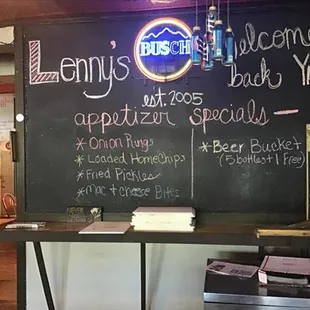 Lenny's
BUSCH
Welcome
back Y
est. 2005
appetizer specials
* Onion Rings
* Loaded Home Chips
* Fried Pickles
* Mac + cheese Bites
* Beer Bucket
(5 bottles + 1 Free)